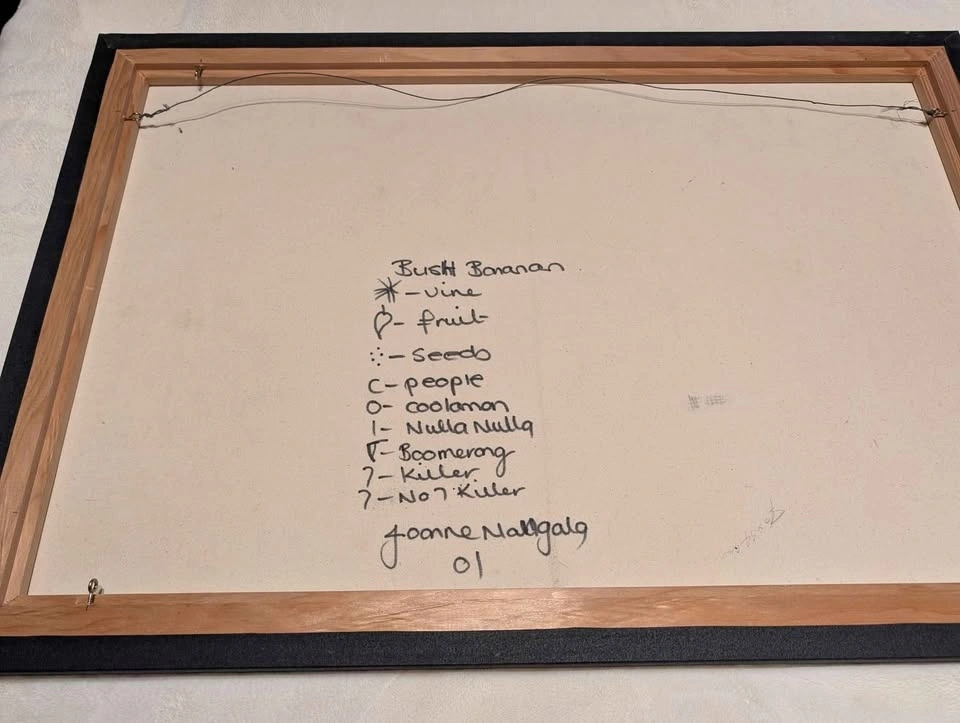 Bush Bananan
- vine
- fruit
- seeds
C - people
O - coolaman
| - Nulla Nulla
- Boomerang
7 - Killer
7 - No 7 Killer
Joanne
01